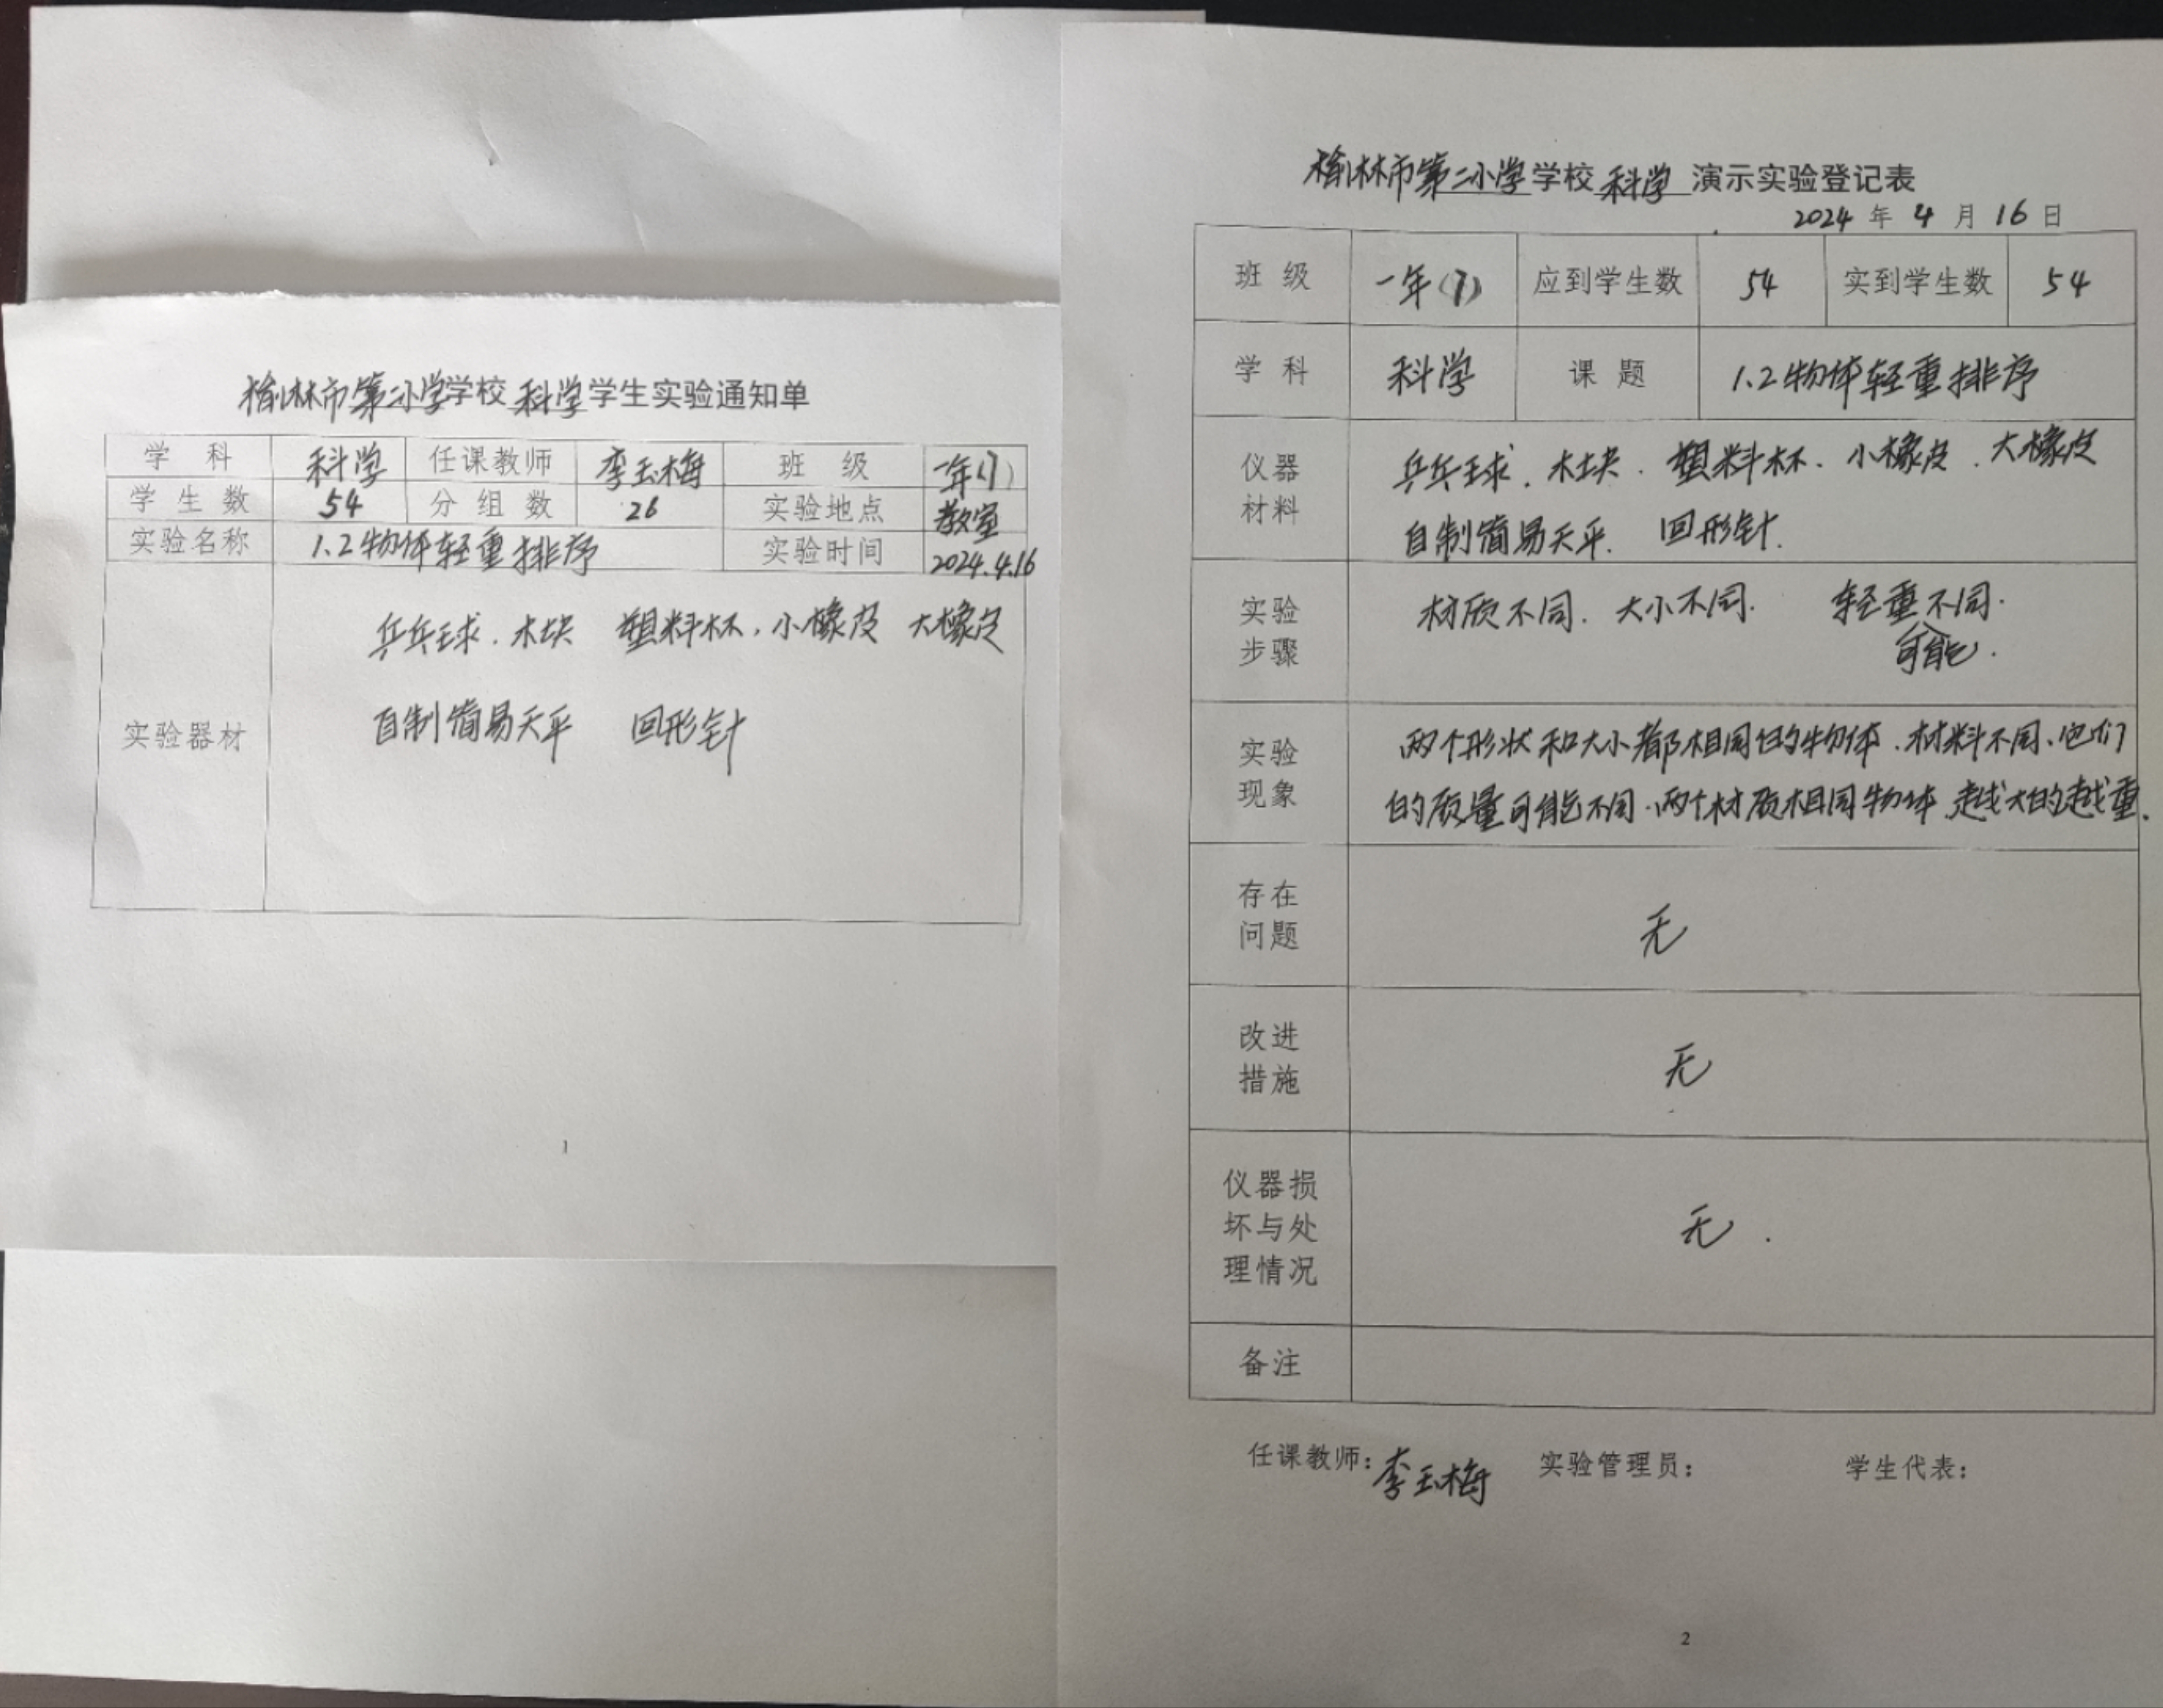 榆林市第二小学学校 科学 学生实验通知单
学 科 科学 任课教师 李玉梅 班 级 一年(7)
学 生 数 54 分 组 数 26 实验地点 教室
实验名称 1.2物体轻重排序 实验时间 2024.4.16
实验器材
乒乓球、木块 塑料杯、小橡皮 大橡皮
自制简易天平 回形针
1
榆林市第二小学学校 科学 演示实验登记表
2024 年 4 月 16 日
班 级 一年(7) 应到学生数 54 实到学生数 54
学 科 科学 课 题 1.2物体轻重排序
仪器材料
乒乓球、木块、塑料杯、小橡皮、大橡皮
自制简易天平、回形针.
实验步骤
材质不同. 大小不同. 轻重不同.
可能.
实验现象
两个形状和大小都相同的物体、材料不同、它们
的质量可能不同.两个材质相同物体 越大的越重.
存在问题
无
改进措施
无
仪器损坏与处理情况
无.
备注
任课教师：李玉梅 实验管理员： 学生代表：
2